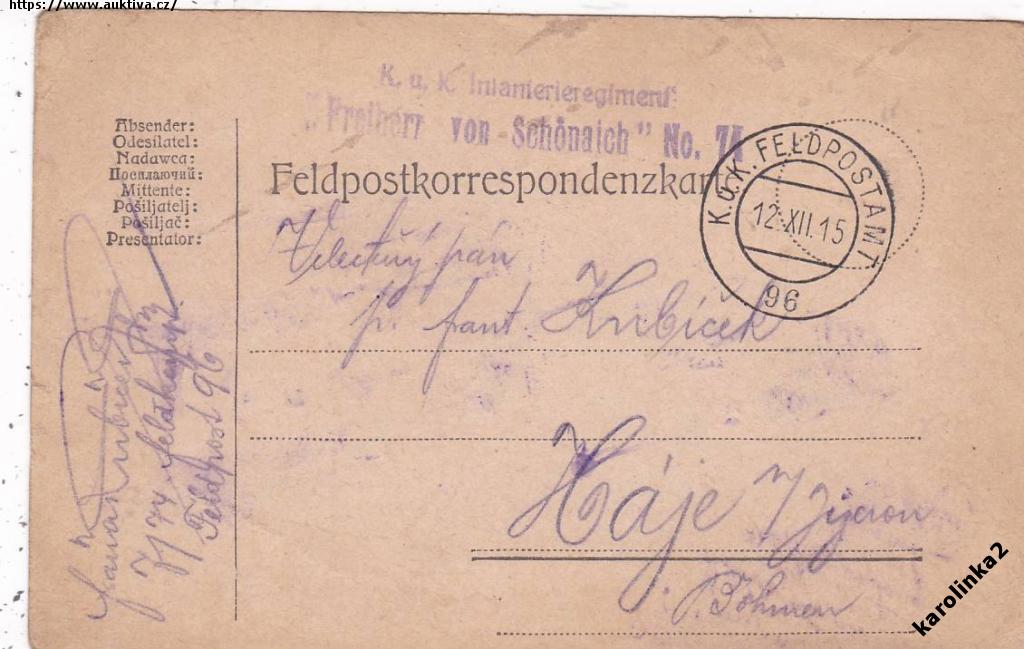 https://www.auktiva.cz/
K. u. k. Infanterieregiment
"Freiherr von Schönaich" No. 74
Absender:
Odesílatel:
Nadawca:
Посилаючий:
Mittente:
Pošiljatelj:
Pošiljač:
Presentator:
Feldpostkorrespondenzkarte
K.u.K. FELDPOSTAMT
12.XII.15
96
Velectěný pán
p. Frant. Kubíček
Háje
Böhmen
Feldpost 96
karolinka2